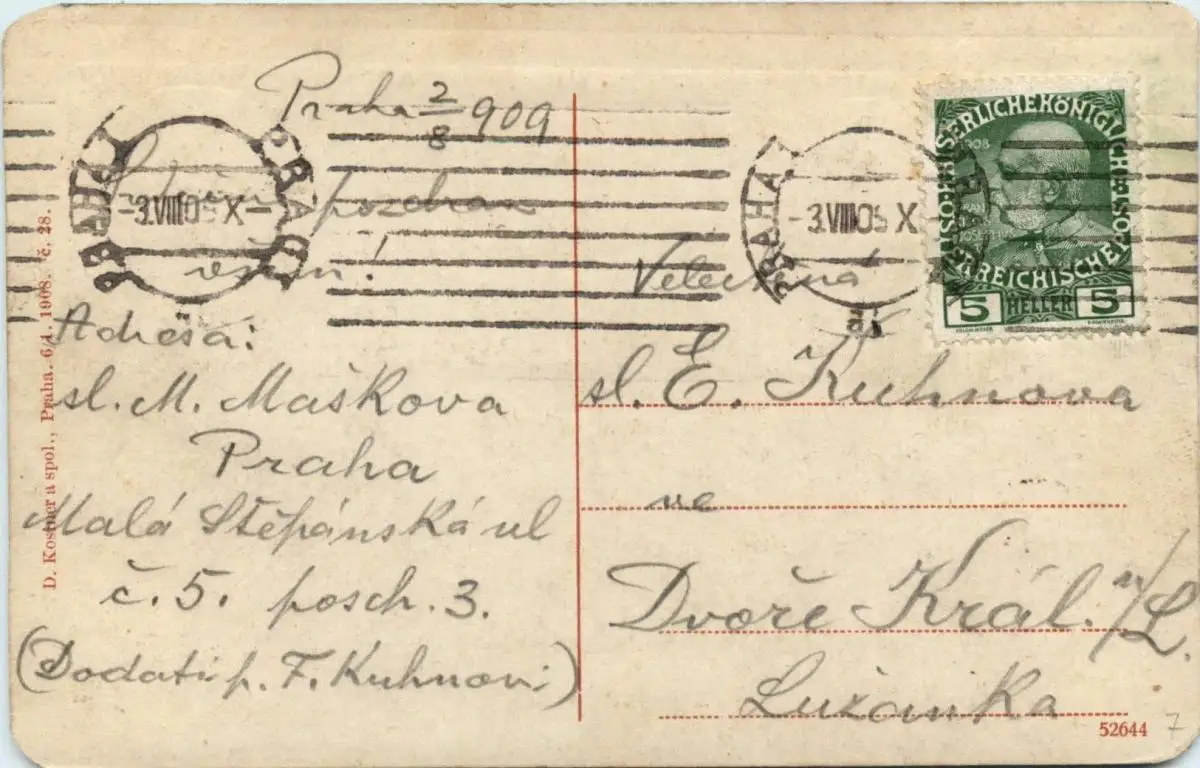 Praha 2/8 909
pozdrav
všem!
Adresa:
sl. M. Maškova
Praha
Malá Štěpánská ul
č. 5. posch. 3.
(Dodati p. F. Kuhnovi)
D. Kostner a spol., Praha. 6/4. 1908. č. 28.
PRAHA PRAG
-3.VIII09 X-
PRAHA PRAG
-3.VIII09 X-
KAISERLICHE KÖNIGLICHE
ÖSTERREICHISCHE
1908
5 HELLER 5
Velectěná
sl. E. Kuhnova
ve
Dvoře Král. n/L.
Lužanka
52644
7